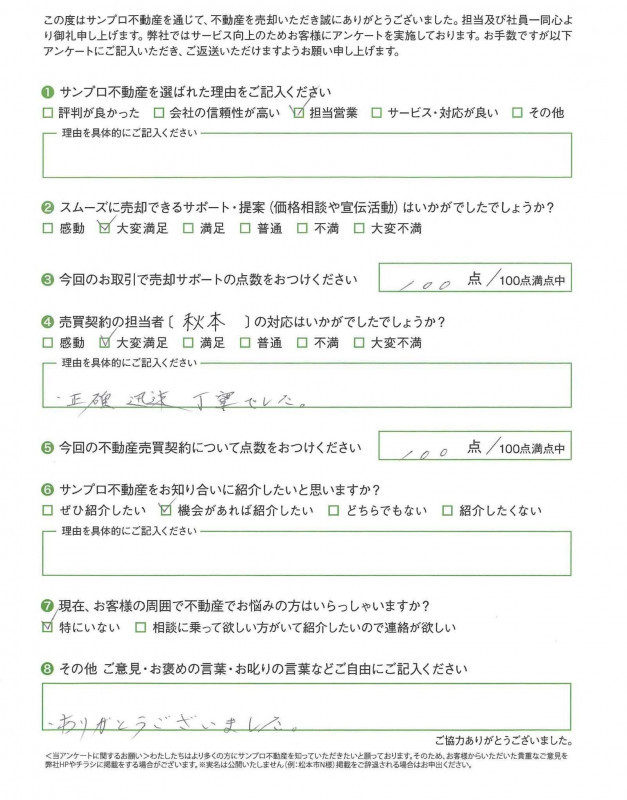 この度はサンプロ不動産を通じて、不動産を売却いただき誠にありがとうございました。担当及び社員一同心よ
り御礼申し上げます。弊社ではサービス向上のためお客様にアンケートを実施しております。お手数ですが以下
アンケートにご記入いただき、ご返送いただけますようお願い申し上げます。
❶ サンプロ不動産を選ばれた理由をご記入ください
□ 評判が良かった □ 会社の信頼性が高い ☑ 担当営業 □ サービス・対応が良い □ その他
理由を具体的にご記入ください
❷ スムーズに売却できるサポート・提案（価格相談や宣伝活動）はいかがでしたでしょうか？
□ 感動 ☑ 大変満足 □ 満足 □ 普通 □ 不満 □ 大変不満
❸ 今回のお取引で売却サポートの点数をおつけください 100 点/100点満点中
❹ 売買契約の担当者〔 秋本 〕の対応はいかがでしたでしょうか？
□ 感動 ☑ 大変満足 □ 満足 □ 普通 □ 不満 □ 大変不満
理由を具体的にご記入ください
・正確 迅速 丁寧でした。
❺ 今回の不動産売買契約について点数をおつけください 100 点/100点満点中
❻ サンプロ不動産をお知り合いに紹介したいと思いますか？
□ ぜひ紹介したい ☑ 機会があれば紹介したい □ どちらでもない □ 紹介したくない
理由を具体的にご記入ください
❼ 現在、お客様の周囲で不動産でお悩みの方はいらっしゃいますか？
☑ 特にいない □ 相談に乗って欲しい方がいて紹介したいので連絡が欲しい
❽ その他 ご意見・お褒めの言葉・お叱りの言葉などご自由にご記入ください
・ありがとうございました。
ご協力ありがとうございました。
＜当アンケートに関するお願い＞わたしたちはより多くの方にサンプロ不動産を知っていただきたいと願っております。そのため、お客様からいただいた貴重なご意見を
弊社HPやチラシに掲載をする場合がございます。※実名は公開いたしません（例：松本市N様）掲載をご辞退される場合はお申出ください。